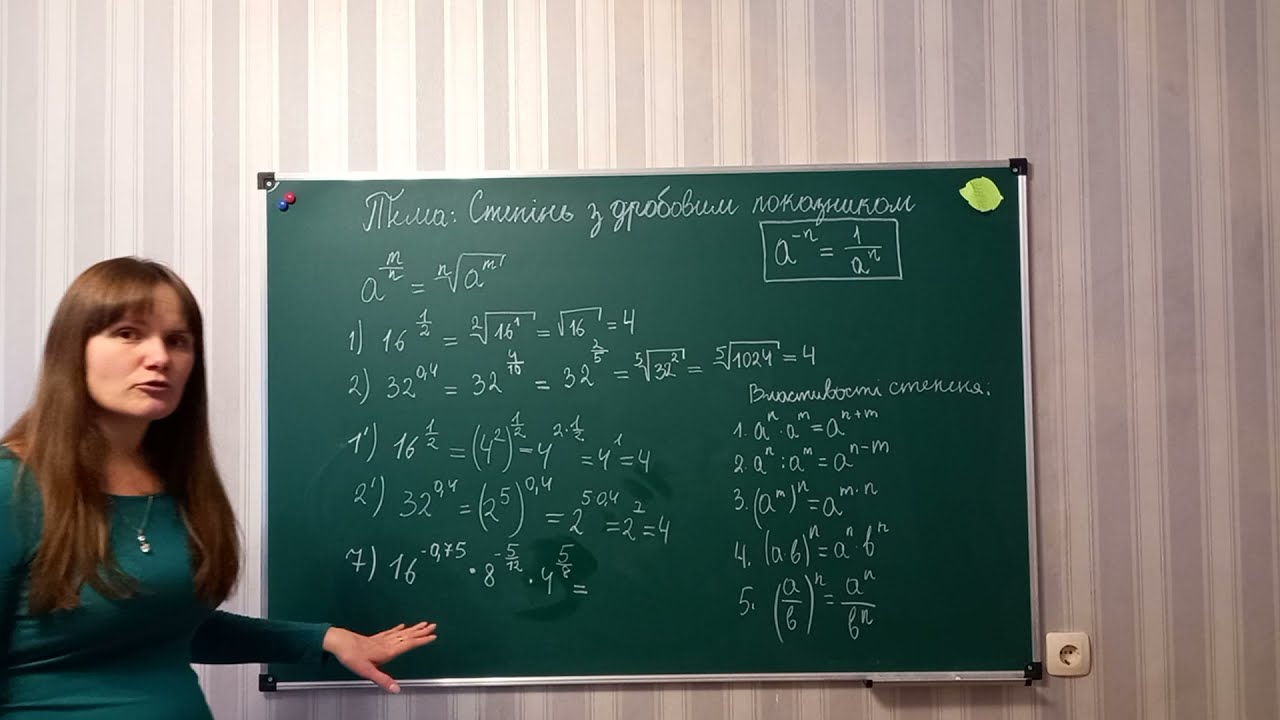 Тема: Степінь з дробовим показником
a^{-n} = \frac{1}{a^n}
a^{\frac{m}{n}} = \sqrt[n]{a^m}
1) 16^{\frac{1}{2}} = \sqrt[2]{16^1} = \sqrt{16} = 4
2) 32^{0,4} = 32^{\frac{4}{10}} = 32^{\frac{2}{5}} = \sqrt[5]{32^2} = \sqrt[5]{1024} = 4
1') 16^{\frac{1}{2}} = (4^2)^{\frac{1}{2}} = 4^{2·\frac{1}{2}} = 4^1 = 4
2') 32^{0,4} = (2^5)^{0,4} = 2^{5·0,4} = 2^2 = 4
7) 16^{-0,75} · 8^{-\frac{5}{12}} · 4^{\frac{5}{8}} =
Властивості степеня:
1. a^n · a^m = a^{n+m}
2. a^n : a^m = a^{n-m}
3. (a^m)^n = a^{m·n}
4. (ab)^n = a^n · b^n
5. (\frac{a}{b})^n = \frac{a^n}{b^n}